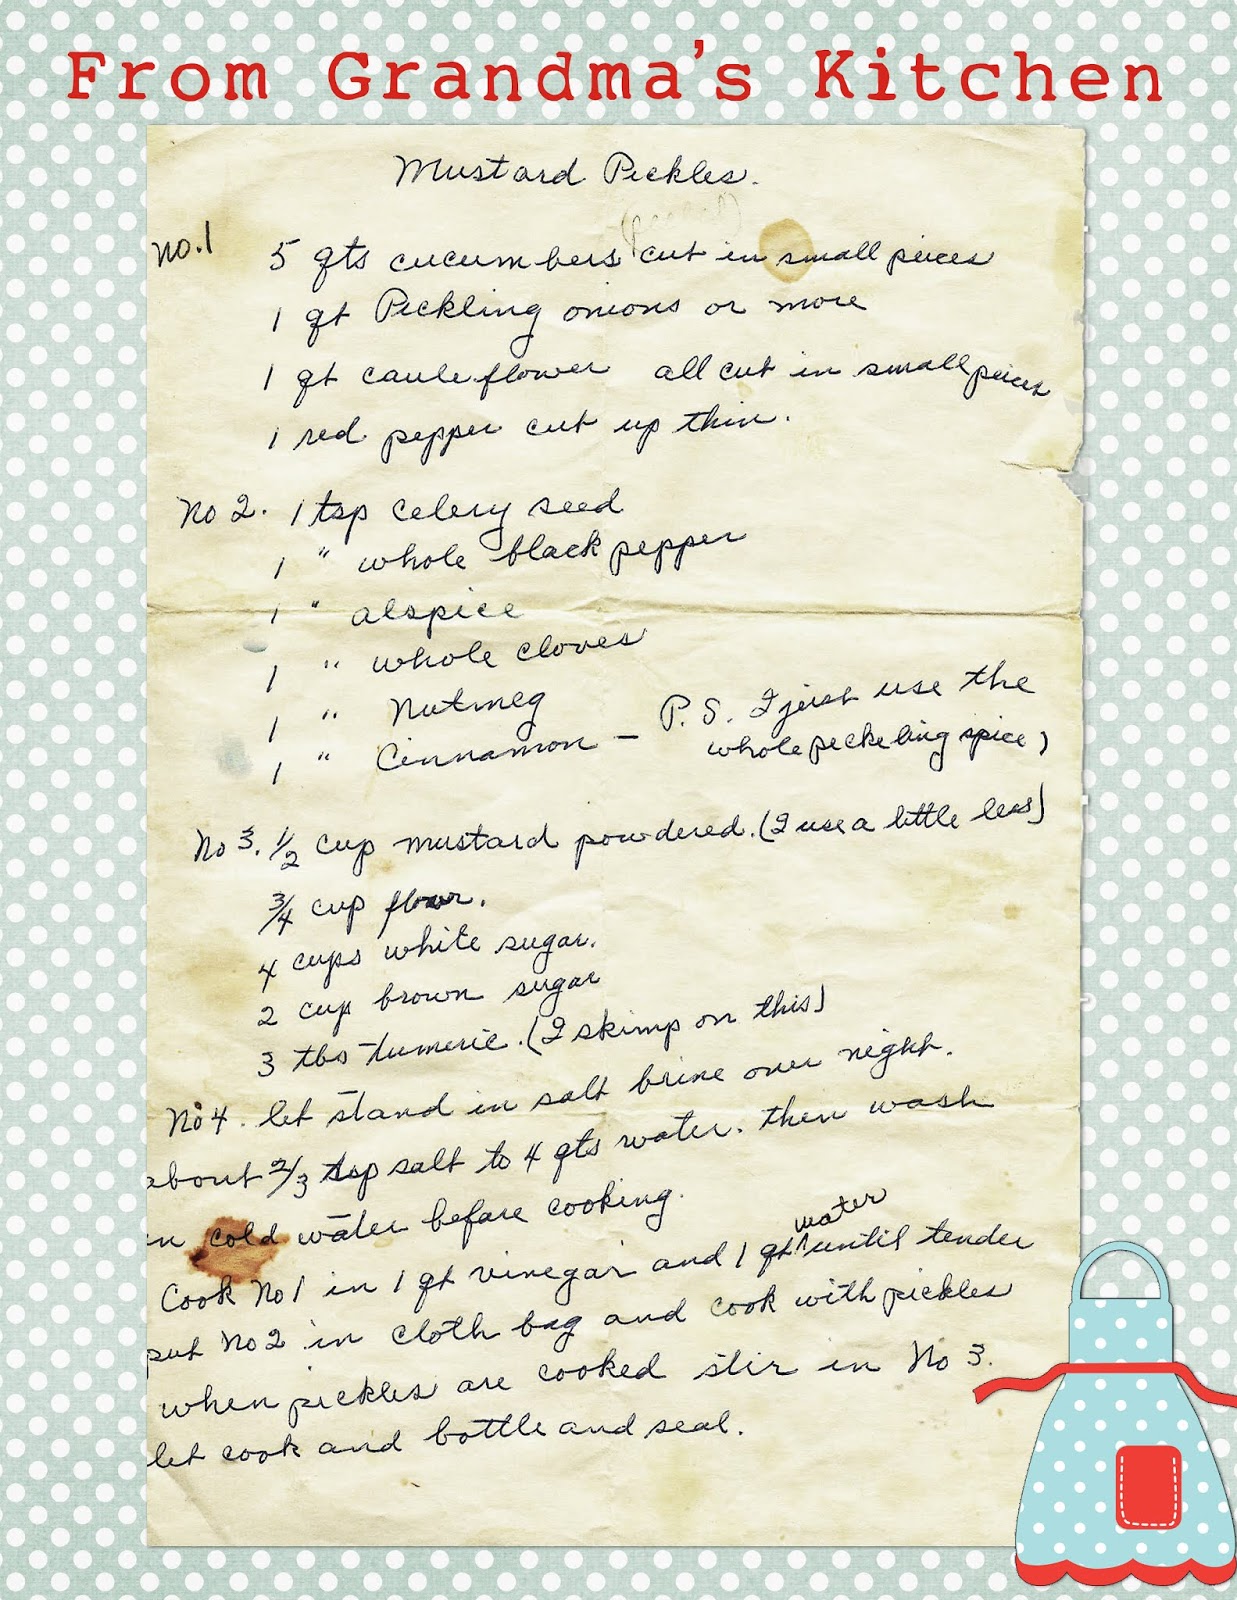 From Grandma's Kitchen
Mustard Pickles.
no. 1 5 qts cucumbers cut in small pieces
1 qt Pickling onions or more
1 qt cauleflower all cut in small pieces
1 red pepper cut up thin.
no 2. 1 tsp celery seed
1 " whole black pepper
1 " alspice
1 " whole cloves
1 " Nutmeg
1 " Cinnamon - P.S. I just use the
whole peckeling spice)
No 3. 1/2 cup mustard powdered. (I use a little less)
3/4 cup flour.
4 cups white sugar.
2 cup brown sugar
3 tbs tumeric. (I skimp on this)
No 4. let stand in salt brine over night.
about 2/3 tsp salt to 4 qts water. then wash
in cold water before cooking.
Cook No 1 in 1 qt vinegar and 1 qt water until tender
put No 2 in cloth bag and cook with pickles
when pickles are cooked stir in No 3.
let cook and bottle and seal.